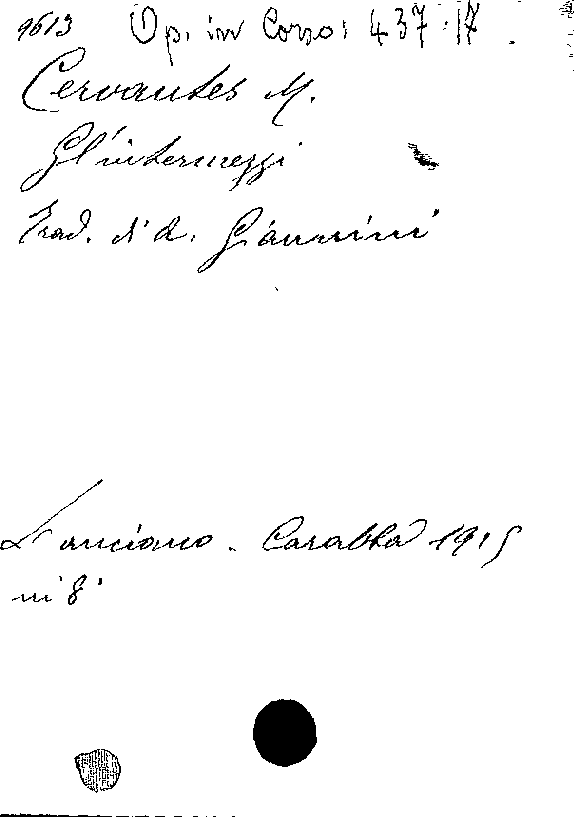 9613 Op. in Corso: 437.17.
Cervantes M.
Gl'intermezzi
Trad. di A. Giannini
Lanciano - Carabba 1915
in 8°